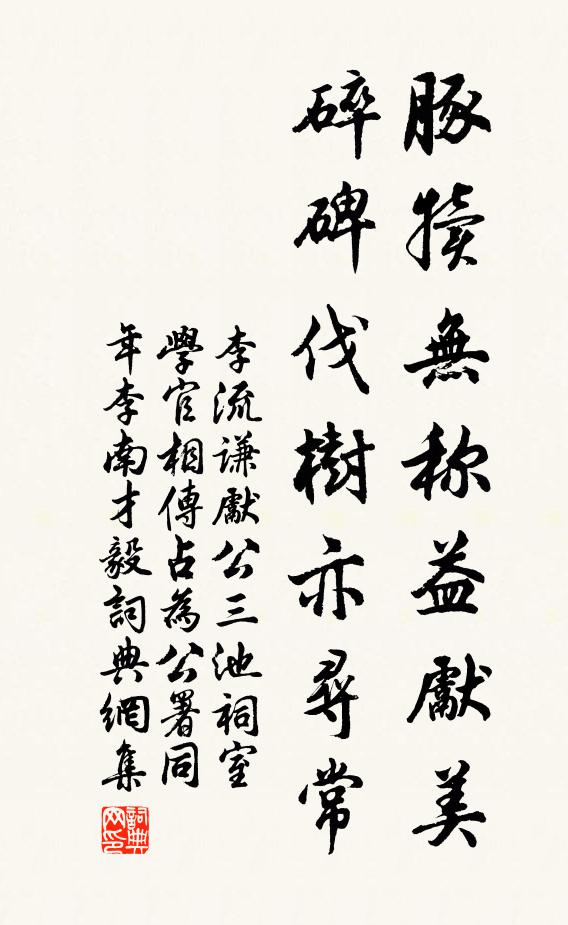 豚犢無称益獻美
碎碑伐樹亦尋常
李流謙獻公三池祠室
學官相傳占為公署同
年李南才毅詞典網集
詞典网印